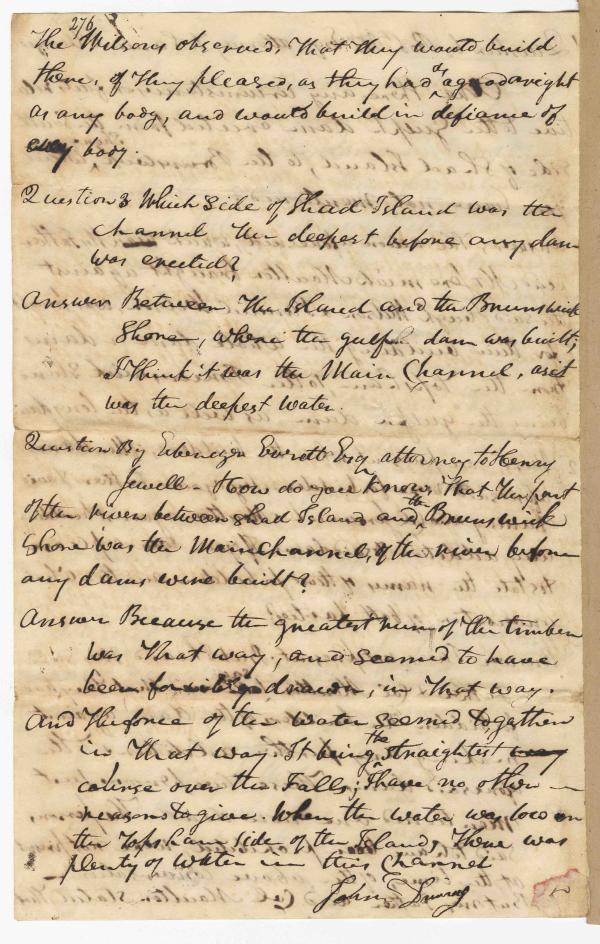 276
The Wilsons observed, That they would build
there, if They pleased, as they had as good a right
as any body, and would build in defiance of
any body.
Question 3 Which Side of Shad Island was the
channel the deepest before any dam
was erected?
Answer Between The Island and the Brunswick
Shore, where the gulph dam was built;
I Think it was the Main Channel, as it
was the deepest water.
Question By Ebenezer Everett Esq attorney to Henry
Jewell - How do you know, That The part
of the river between Shad Island and the Brunswick
Shore was the Main Channel, of the river before
any dams were built?
Answer Because the greatest run of the timber
was That way, and seemed to have
been drawn, in That way.
And The force of the water seemed to gather
in That way. It being the straightest way
course over the Falls; I have no other
reasons to give. When the water was low on
the Topsham side of the Island, There was
plenty of water in this Channel
John